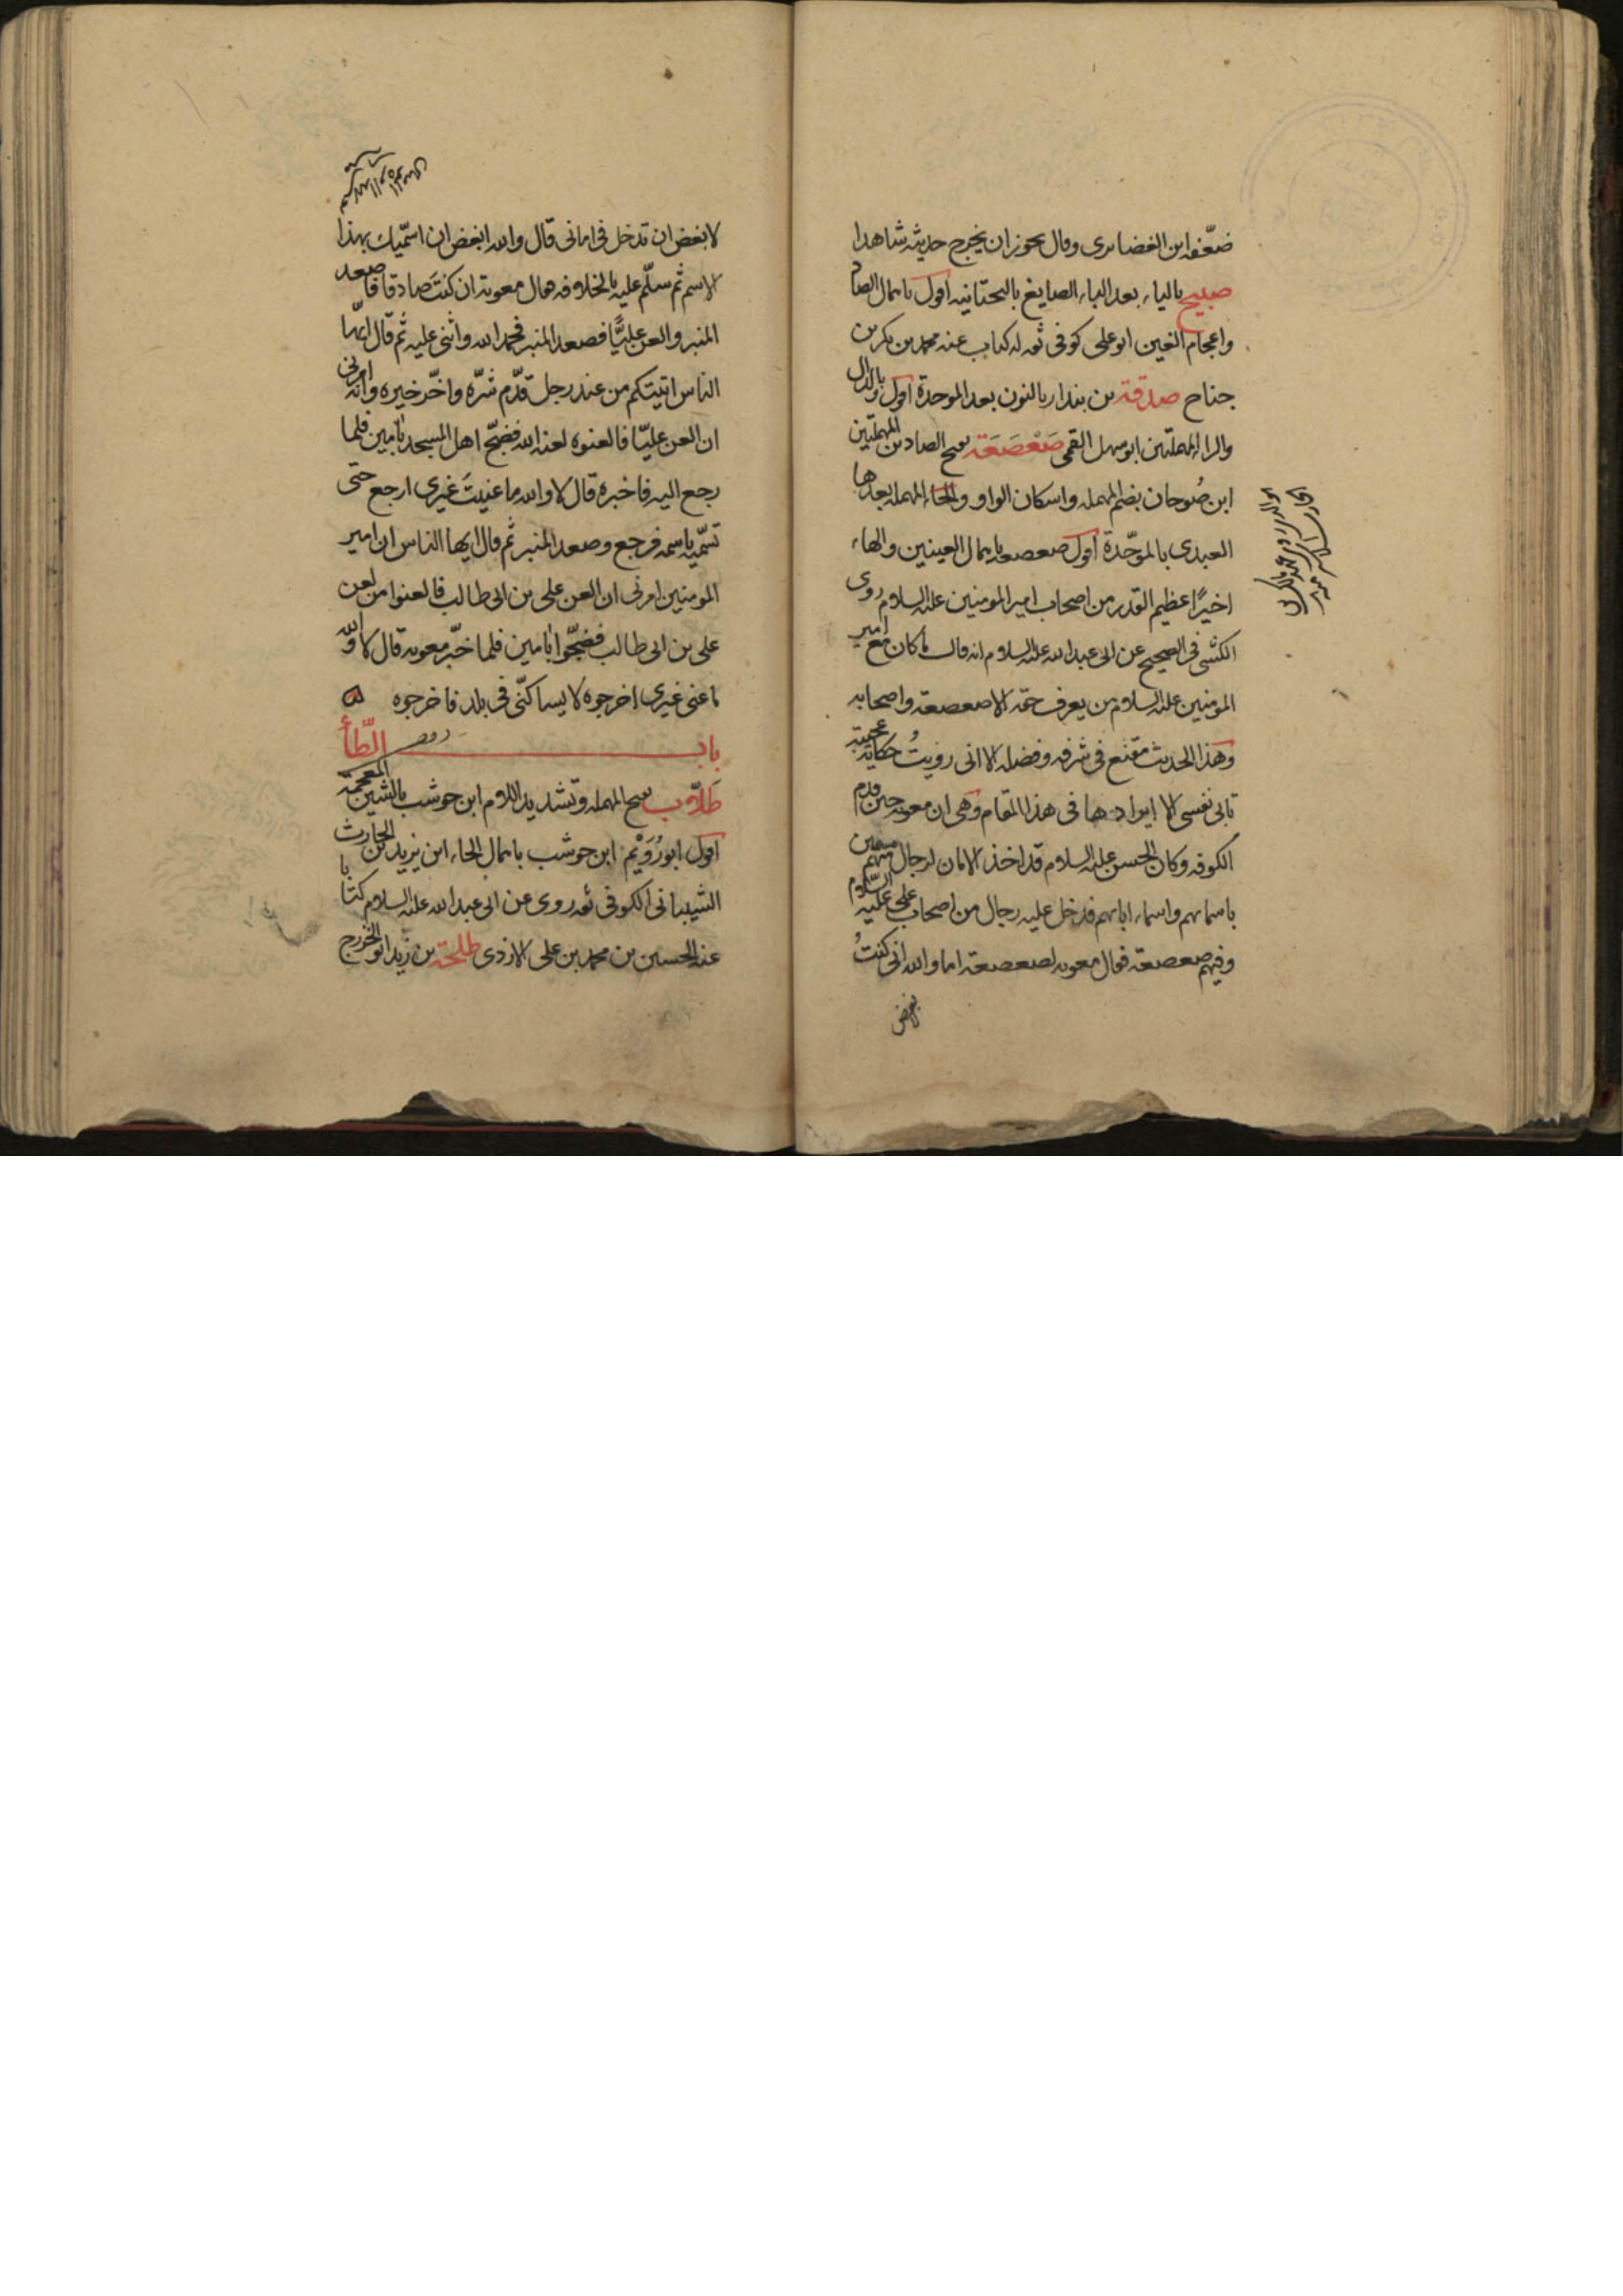 ضعّفه ابن الغضايرى وقال يجوز ان يخرج حديثه شاهدا
صبيح بالياء بعد الباء الصايغ بالتحتانيه اقول باهمال الصاد
واعجام الغين ابو على كوفى ثقه له كتاب عنه محمد بن بكر بن
جناح صدقة بن بندار بالنون بعد الموحدة اقول والدال
والراء المهملتين ابو سهل القمى صَعْصَعَة بفتح الصادين المهملتين
ابن صُوحان بضم المهمله واسكان الواو والحاء المهمله بعدها
العبدى بالموحّدة اقول صعصعه باهمال العينين والهاء
اخيرًا عظيم القدر من اصحاب امير المومنين عليه السلام روى
الكشى فى الصحيح عن ابى عبد الله عليه السلام انه قال ما كان مع امير
المومنين عليه السلام من يعرف حقه الا صعصعة واصحابه
وهذا الحديث مقنع فى شرفه وفضله الا انى رويتُ حكاية عجيبة
تابى نفسى الا ايرادها فى هذا المقام وهى ان معويه حين قدم
الكوفه وكان الحسن عليه السلام قد اخذ الامان لرجال منهم مسمين
باسمائهم واسماء ابائهم فدخل عليه رجال من اصحاب على عليه السّلام
وفيهم صعصعة فقال معويه لصعصعة اما والله انى كنتُ
لابغض
لابغض ان تدخل فى امانى قال والله ابغض ان اسمّيك بهذا
الاسم ثم سلّم عليه بالخلافه فقال معوية ان كنتَ صادقا فاصعد
المنبر والعن عليًّا فصعد المنبر فحمد الله واثنى عليه ثم قال ايّها
الناس اتيتكم من عند رجل قدّم شرّه واخّر خيره وانّه امرنى
ان العن عليّا فالعنوه لعنه الله فضجّ اهل المسجد بامين فلما
رجع اليه فاخبره قال لا والله ما عنيتَ غيرى ارجع حتى
تسمّيه باسمه فرجع وصعد المنبر ثم قال ايها الناس ان امير
المومنين امرنى ان العن على بن ابى طالب فالعنوا من لعن
على بن ابى طالب فضجّوا بامين فلما خبّر معويه قال لا والله
ما عنى غيرى اخرجوه لا يساكنّى فى بلد فاخرجوه
باب الطّاء
طَلّاب بفتح المهمله وتشديد اللام ابن حوشب بالشين المعجمة
اقول ابو رُوَيْم ابن حوشب باهمال الحاء ابن يزيد بن الحارث
الشيبانى الكوفى ثقه روى عن ابى عبد الله عليه السلام كتابا
عنه الحسين بن محمد بن على الازدى طلحة بن زيد ابو الخزرج